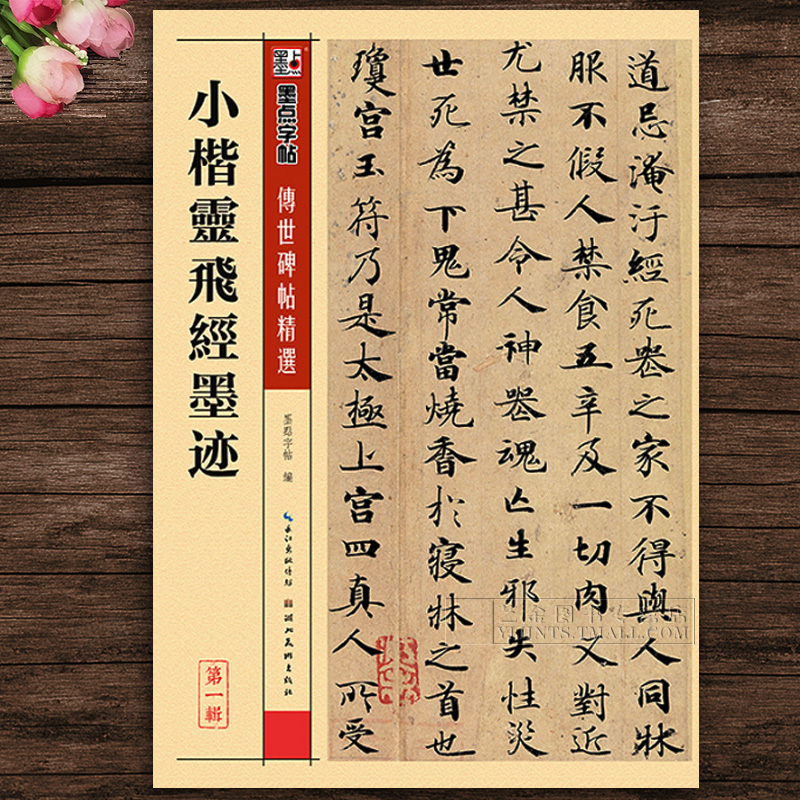 小楷靈飛經墨迹
第一輯
墨点
墨点字帖
傳世碑帖精選
墨點字帖 編
长江出版传媒
湖北美术出版社
道忌淹汙經死喪之家不得與人同牀
服不假人禁食五辛及一切肉又對近
尤禁之甚令人神喪魂亡生邪失性災
世死為下鬼常當燒香於寢牀之首也
瓊宮玉符乃是太極上宮四真人所受